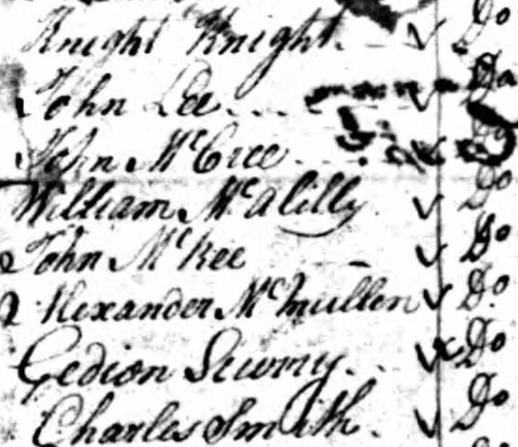 Knight Knight. √ Do
John Lee... √ Do
John McCree... Do
William McAlilly √ Do
John McKee — √ Do
Alexander McMullen √ Do
Gedion √ Do
Charles Smith. √ Do